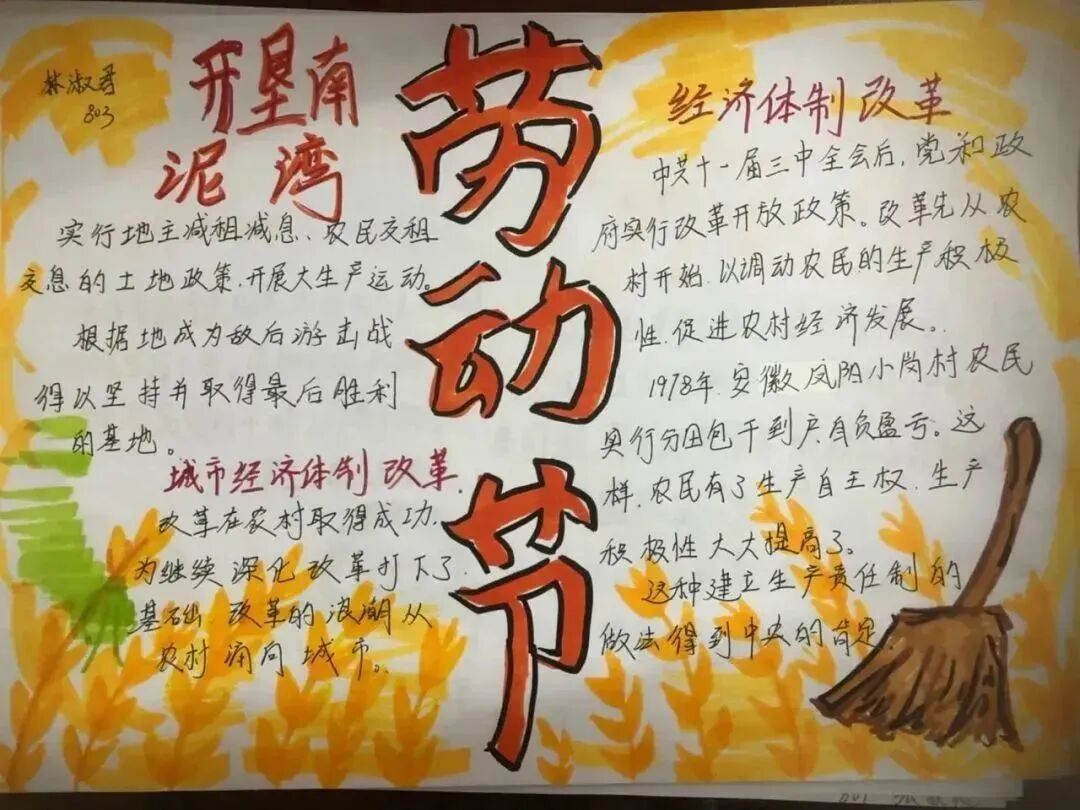 林淑
803
开垦南
泥湾
实行地主减租减息、农民交租
交息的土地政策,开展大生产运动。
根据地成为敌后游击战
得以坚持并取得最后胜利
的基地。
城市经济体制改革.
改革在农村取得成功,
为继续深化改革打下了
基础,改革的浪潮从
农村涌向城市。
劳动节
经济体制改革
中共十一届三中全会后,党和政
府实行改革开放政策。改革先从农
村开始,以调动农民的生产积极
性,促进农村经济发展。
1978年,安徽凤阳小岗村农民
实行分田包干到户,自负盈亏。这
样,农民有了生产自主权,生产
积极性大大提高了。
这种建立生产责任制的
做法得到中央的肯定.